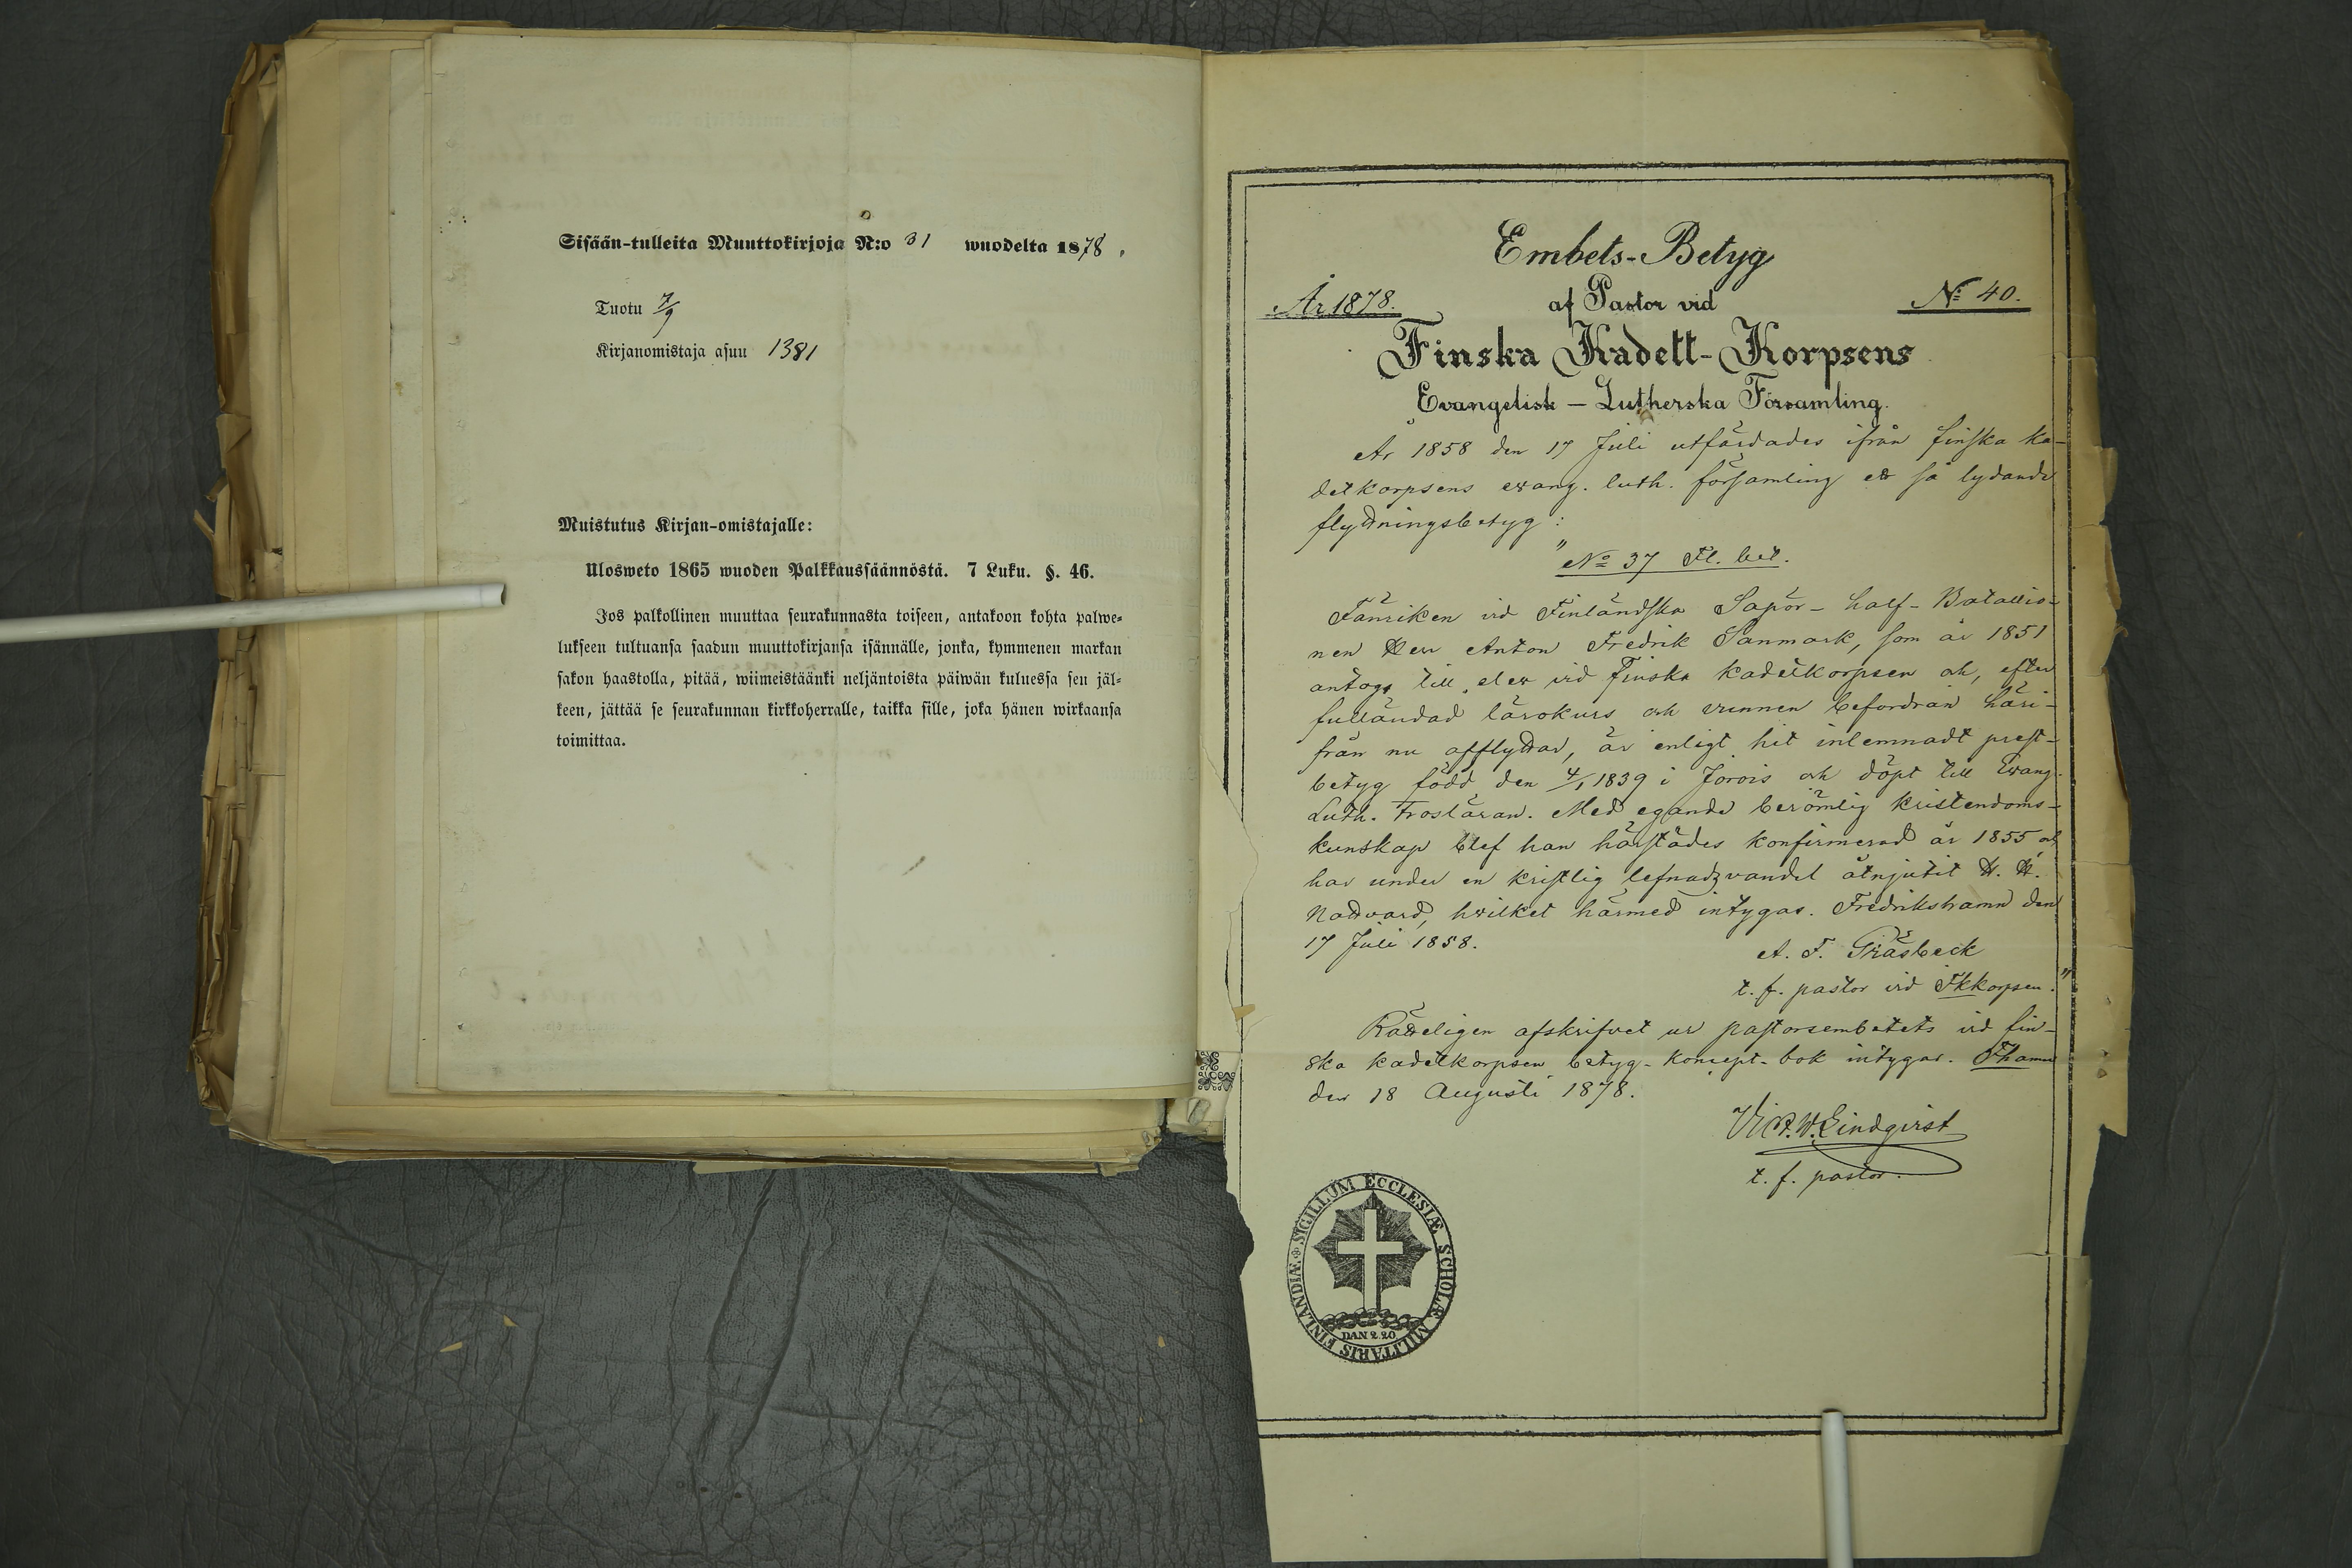 Sisään-tulleita Muuttokirjoja N:o 31 wuodelta 1878.
Tuotu 7/9
Kirjanomistaja asuu 1381
Muistutus Kirjan-omistajalle:
Ulosweto 1865 wuoden Palkkaussäännöstä. 7 Luku. §. 46.
Jos palkollinen muuttaa seurakunnasta toiseen, antakoon kohta palwe-
lukseen tultuansa saadun muuttokirjansa isännälle, jonka, kymmenen markan
sakon haastolla, pitää, wiimeistäänki neljäntoista päiwän kuluessa sen jäl-
keen, jättää se seurakunnan kirkkoherralle, taikka sille, joka hänen wirkaansa
toimittaa.
Embets-Betyg
År 1878. af Pastor vid No 40.
Finska Kadett-Korpsens
Evangelisk – Lutherska Församling.
År 1858 den 17 Juli utfärdades ifrån finska ka-
dettkorpsens evang. luth. församling ett så lydande
flyttningsbetyg:
"No 37 Fl. bet.
Fänriken vid Finländska Sapör-half-Batallio-
nen Herr Anton Fredrik Sanmark, som år 1851
antogs till elev vid Finska kadettkorpsen och, efter
fulländad lärokurs och vunnen befordran häri-
från nu afflyttar, är enligt hit inlemnadt prest-
betyg född den 4/1 1839 i Jorois och döpt till Evang.
Luth. Trosläran. Med egande berömlig kristendoms-
kunskap blef han härstädes konfirmerad år 1855 och
har under en kristlig lefnadsvandel åtnjutit H. H.
Nattvard, hvilket härmed intygas. Fredrikshamn den
17 Juli 1858.
A. F. Gräsbeck
t. f. pastor vid Fkkorpsen."
Rätteligen afskrifvet ur pastorsembetets vid fin-
ska kadettkorpsen betyg-koncept-bok intygar. Fhamn
den 18 Augusti 1878.
Vict. W. Lindqvist
t. f. pastor.
SIGILLUM ECCLESIÆ SCHOLÆ MILITARIS FINLANDIÆ
DAN 2.20